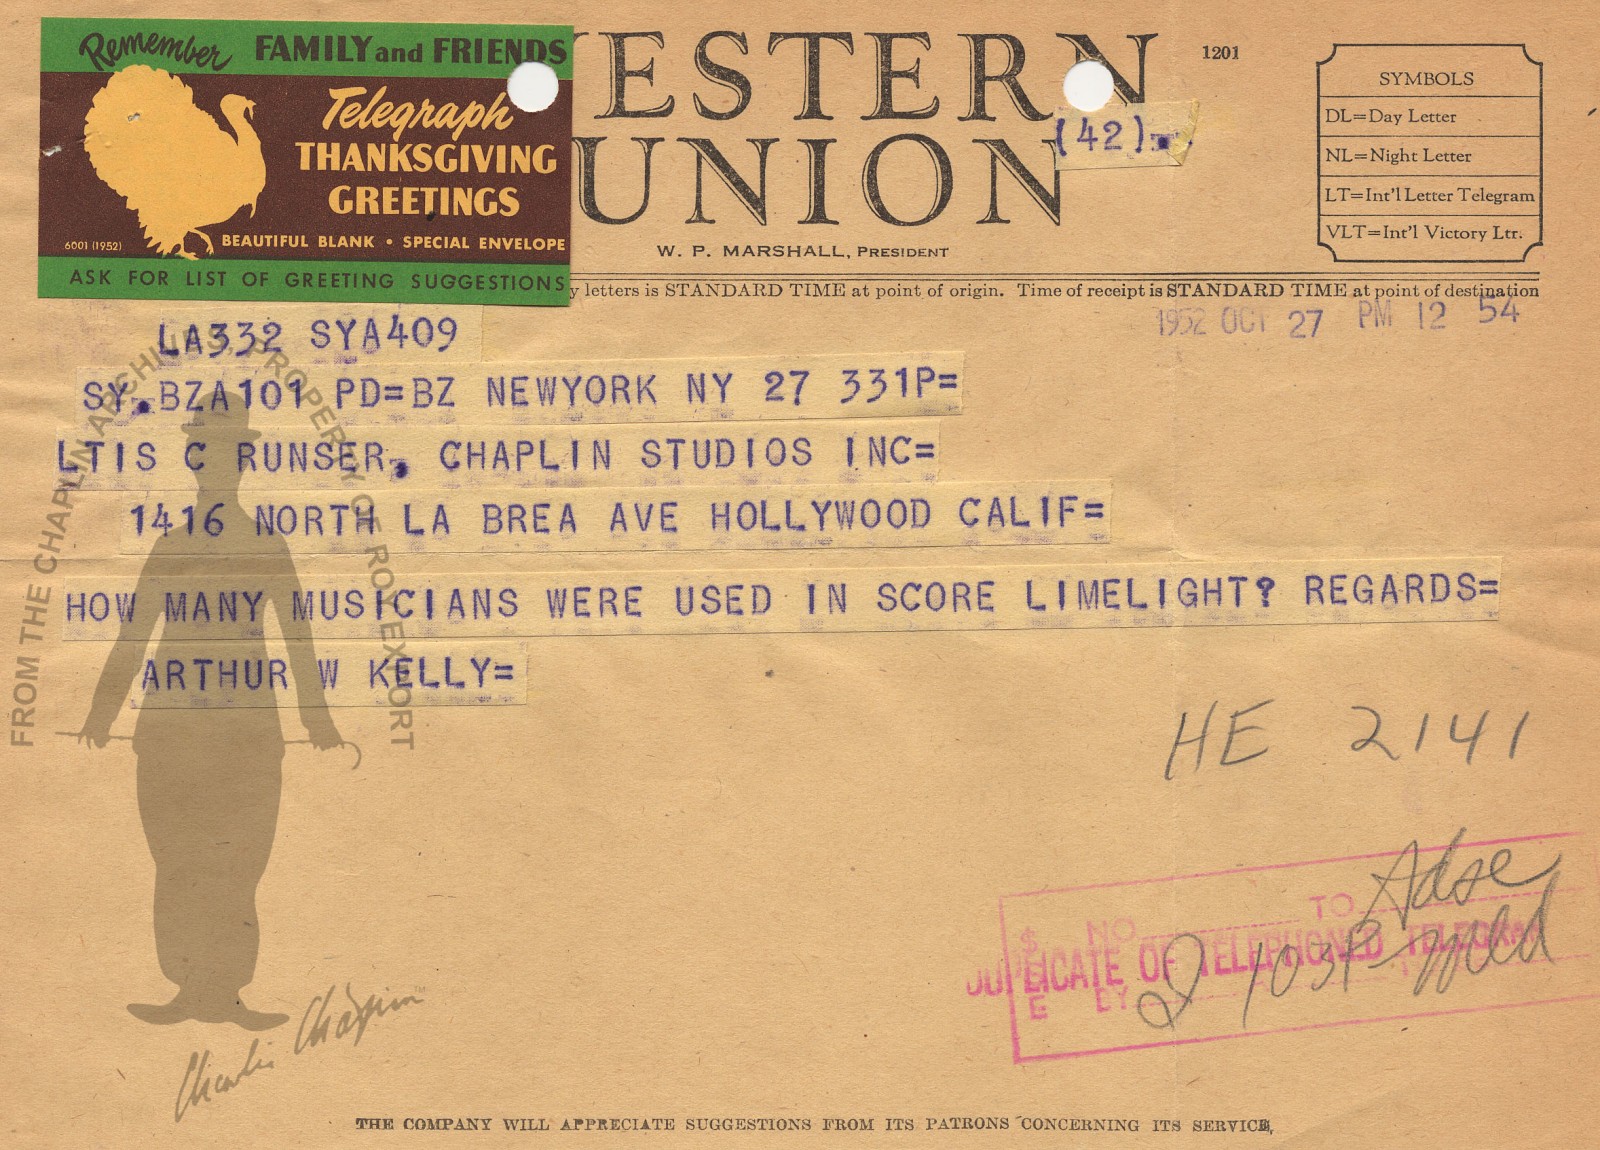 Remember FAMILY and FRIENDS
Telegraph
THANKSGIVING
GREETINGS
6001 (1952)
BEAUTIFUL BLANK • SPECIAL ENVELOPE
ASK FOR LIST OF GREETING SUGGESTIONS
ESTERN
UNION
1201
(42)
W. P. MARSHALL, PRESIDENT
SYMBOLS
DL=Day Letter
NL=Night Letter
LT=Int'l Letter Telegram
VLT=Int'l Victory Ltr.
y letters is STANDARD TIME at point of origin. Time of receipt is STANDARD TIME at point of destination
1952 OCT 27 PM 12 54
LA332 SYA409
SY.BZA101 PD=BZ NEWYORK NY 27 331P=
LTIS C RUNSER, CHAPLIN STUDIOS INC=
1416 NORTH LA BREA AVE HOLLYWOOD CALIF=
HOW MANY MUSICIANS WERE USED IN SCORE LIMELIGHT? REGARDS=
ARTHUR W KELLY=
FROM THE CHAPLIN ARCHIVES, PROPERTY OF ROY EXPORT
HE 2141
NO TO
DUPLICATE OF TELEPHONED TELEGRAM
103P
Charlie Chaplin
THE COMPANY WILL APPRECIATE SUGGESTIONS FROM ITS PATRONS CONCERNING ITS SERVICE